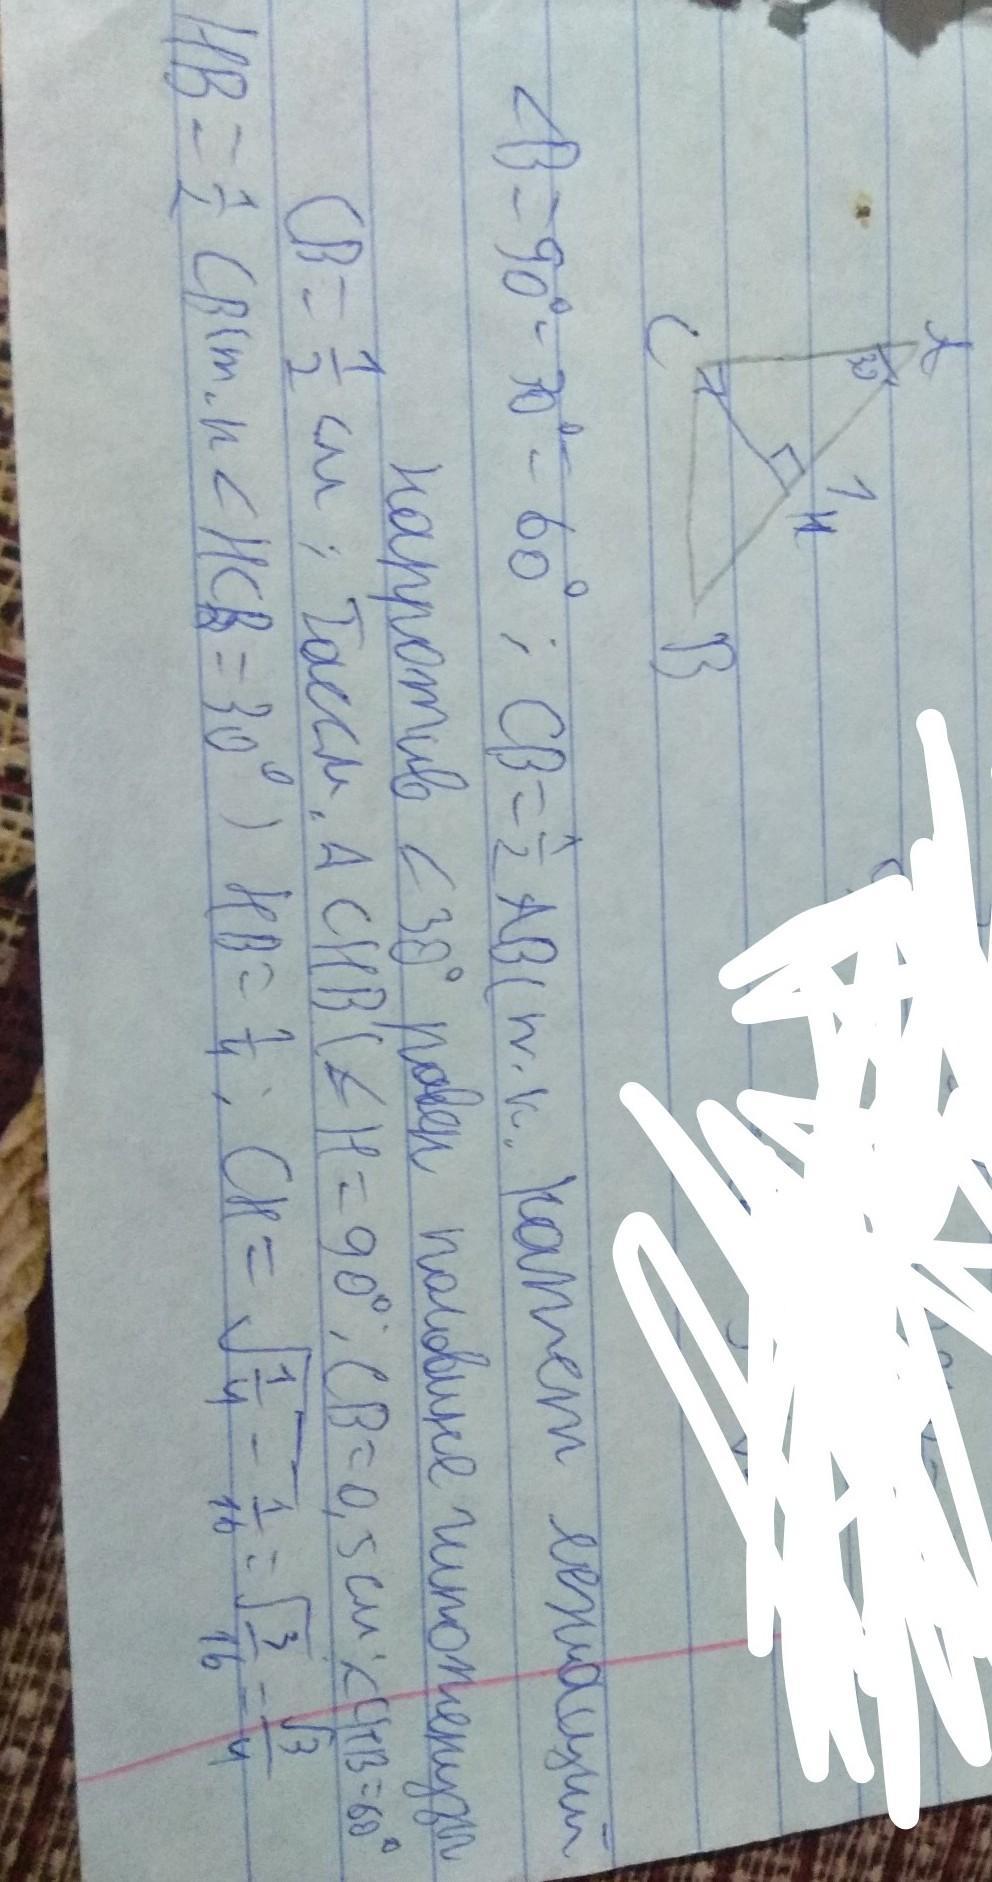 A
30
1
H
C
B
∠B = 90° - 30° - 60° ; CB = 1/2 AB (т.к. катет лежащий
напротив ∠30° равен половине гипотенузы
CB = 1/2 см ; Рассм. Δ CHB (∠H = 90° ; CB = 0,5 см ; ∠CHB = 60°
HB = 1/2 CB (т.к ∠HCB = 30°) HB = 1/4 ; CH = √(1/4 - 1/16) = √(3/16) = √3/4